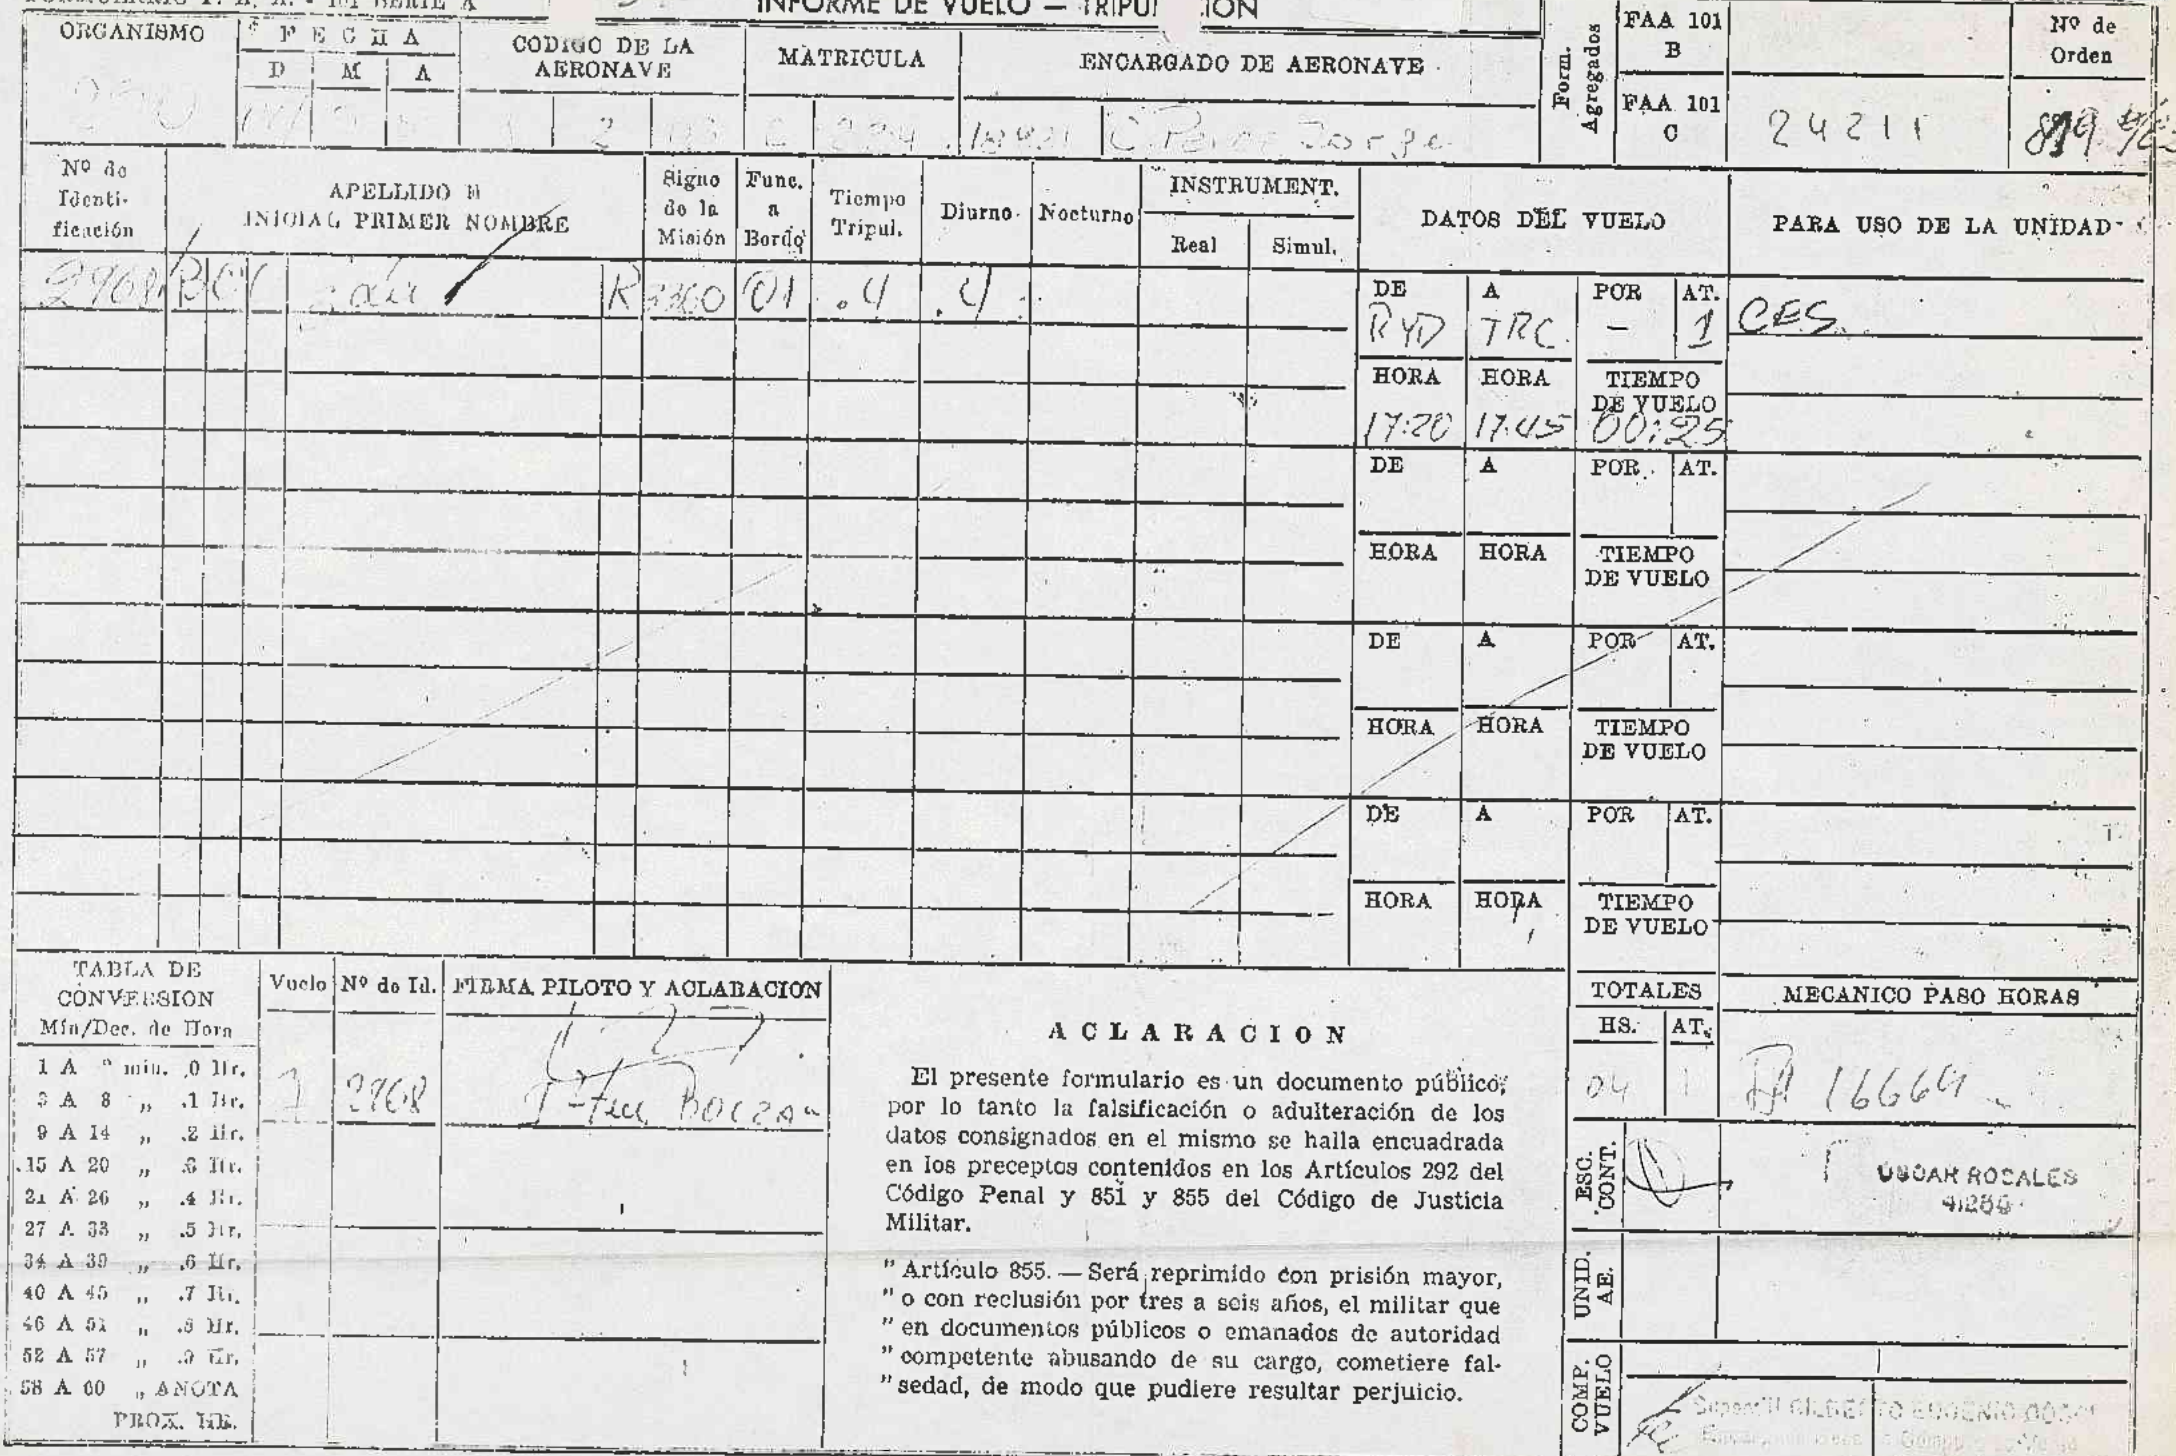 INFORME DE VUELO — TRIPU
ORGANISMO
FECHA
D M A
CODIGO DE LA
AERONAVE
MATRICULA
ENCARGADO DE AERONAVE
Form.
Agregados
FAA 101
B
FAA 101
C
24211
Nº de
Orden
Nº de
Identi-
ficación
APELLIDO E
INICIAL PRIMER NOMBRE
Signo
de la
Misión
Func.
a
Bordo
Tiempo
Tripul.
Diurno
Nocturno
INSTRUMENT.
Real Simul.
DATOS DEL VUELO
PARA USO DE LA UNIDAD
2968 R 3360 01 .4 .4
DE A POR AT.
RYD TRC. — 1 CES.
HORA HORA TIEMPO
DE VUELO
17:20 17:45 00:25
DE A POR AT.
HORA HORA TIEMPO
DE VUELO
DE A POR AT.
HORA HORA TIEMPO
DE VUELO
DE A POR AT.
HORA HORA TIEMPO
DE VUELO
TABLA DE
CONVERSION
Min/Dec. de Hora
1 A min. .0 Hr.
3 A 8 „ .1 Hr.
9 A 14 „ .2 Hr.
15 A 20 „ .3 Hr.
21 A 26 „ .4 Hr.
27 A 33 „ .5 Hr.
34 A 39 „ .6 Hr.
40 A 45 „ .7 Hr.
46 A 51 „ .8 Hr.
52 A 57 „ .9 Hr.
58 A 60 „ ANOTA
PROX. HR.
Vuelo Nº de Id. FIRMA PILOTO Y ACLARACION
1 2968
ACLARACION
El presente formulario es un documento público,
por lo tanto la falsificación o adulteración de los
datos consignados en el mismo se halla encuadrada
en los preceptos contenidos en los Artículos 292 del
Código Penal y 851 y 855 del Código de Justicia
Militar.
" Artículo 855. — Será reprimido con prisión mayor,
" o con reclusión por tres a seis años, el militar que
" en documentos públicos o emanados de autoridad
" competente abusando de su cargo, cometiere fal-
" sedad, de modo que pudiere resultar perjuicio.
TOTALES
HS. AT.
04 1
MECANICO PASO HORAS
16664
ESC.
CONT.
OSCAR ROSALES
UNID.
AE.
COMP.
VUELO